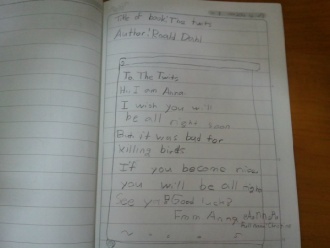 Title of book: The Twits
Author: Roald Dahl
To The Twits
Hi. I am Anna
I wish you will
be all right soon
But it was bad for
killing birds
If you become nice
you will be all right
See you Good
From Anna